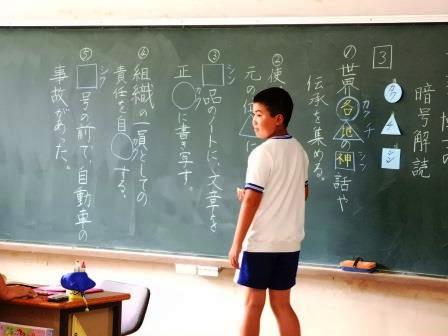 暗号解読
3
カク
チ
シン
の世界各地の神話や
カク チ シン
伝承を集める。
②使
元の
シン
③□品のノートに、文章を
正○に書き写す。
④組織の一員としての
カク
責任を自○する。
シン
⑤□号の前で、自動車の
事故があった。